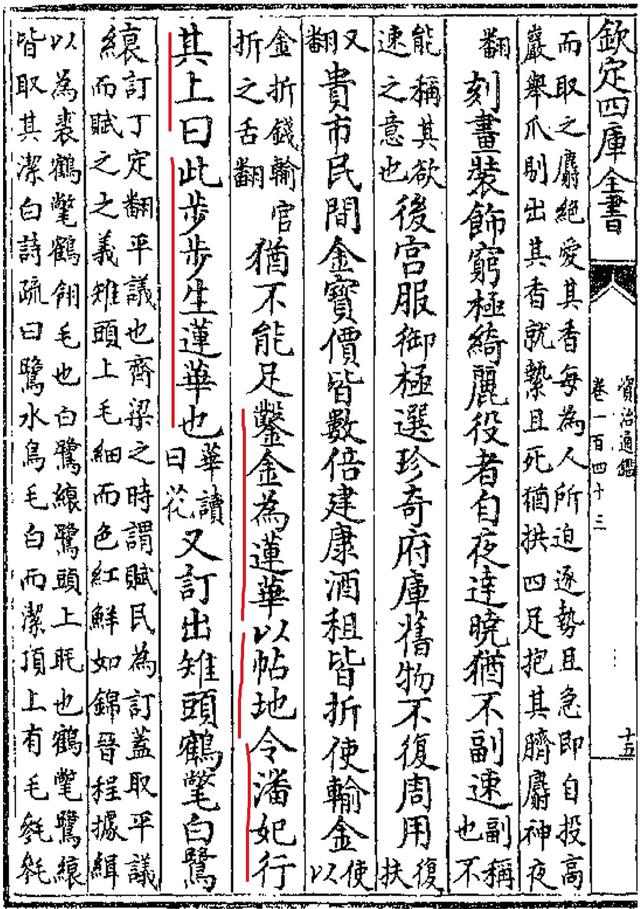 欽定四庫全書
資治通鑑
卷一百四十三
十五
而取之麝絶愛其香每為人所迫逐勢且急即自投高
巖舉爪剔出其香就縶且死猶拱四足抱其臍麝神夜
翻
刻畫裝飾窮極綺麗役者自夜達曉猶不副速
副稱
也不
能稱其欲
速之意也
後宮服御極選珍奇府庫舊物不復周用
復
扶
又
翻
貴市民間金寶價皆數倍建康酒租皆折使輸金
使
以
金折錢輸官
折之舌翻
猶不能足鑿金為蓮華以帖地令潘妃行
其上曰此步步生蓮華也
華讀
曰花
又訂出雉頭鶴氅白鷺
縗
訂丁定翻平議也齊梁之時謂賦民為訂蓋取平議
而賦之之義雉頭上毛細而色紅鮮如錦晉程據緝
以為裘鶴氅鶴翎毛也白鷺縗鷺頭上毦也鶴氅鷺縗
皆取其潔白詩疏曰鷺水鳥毛白而潔頂上有毛毿毿